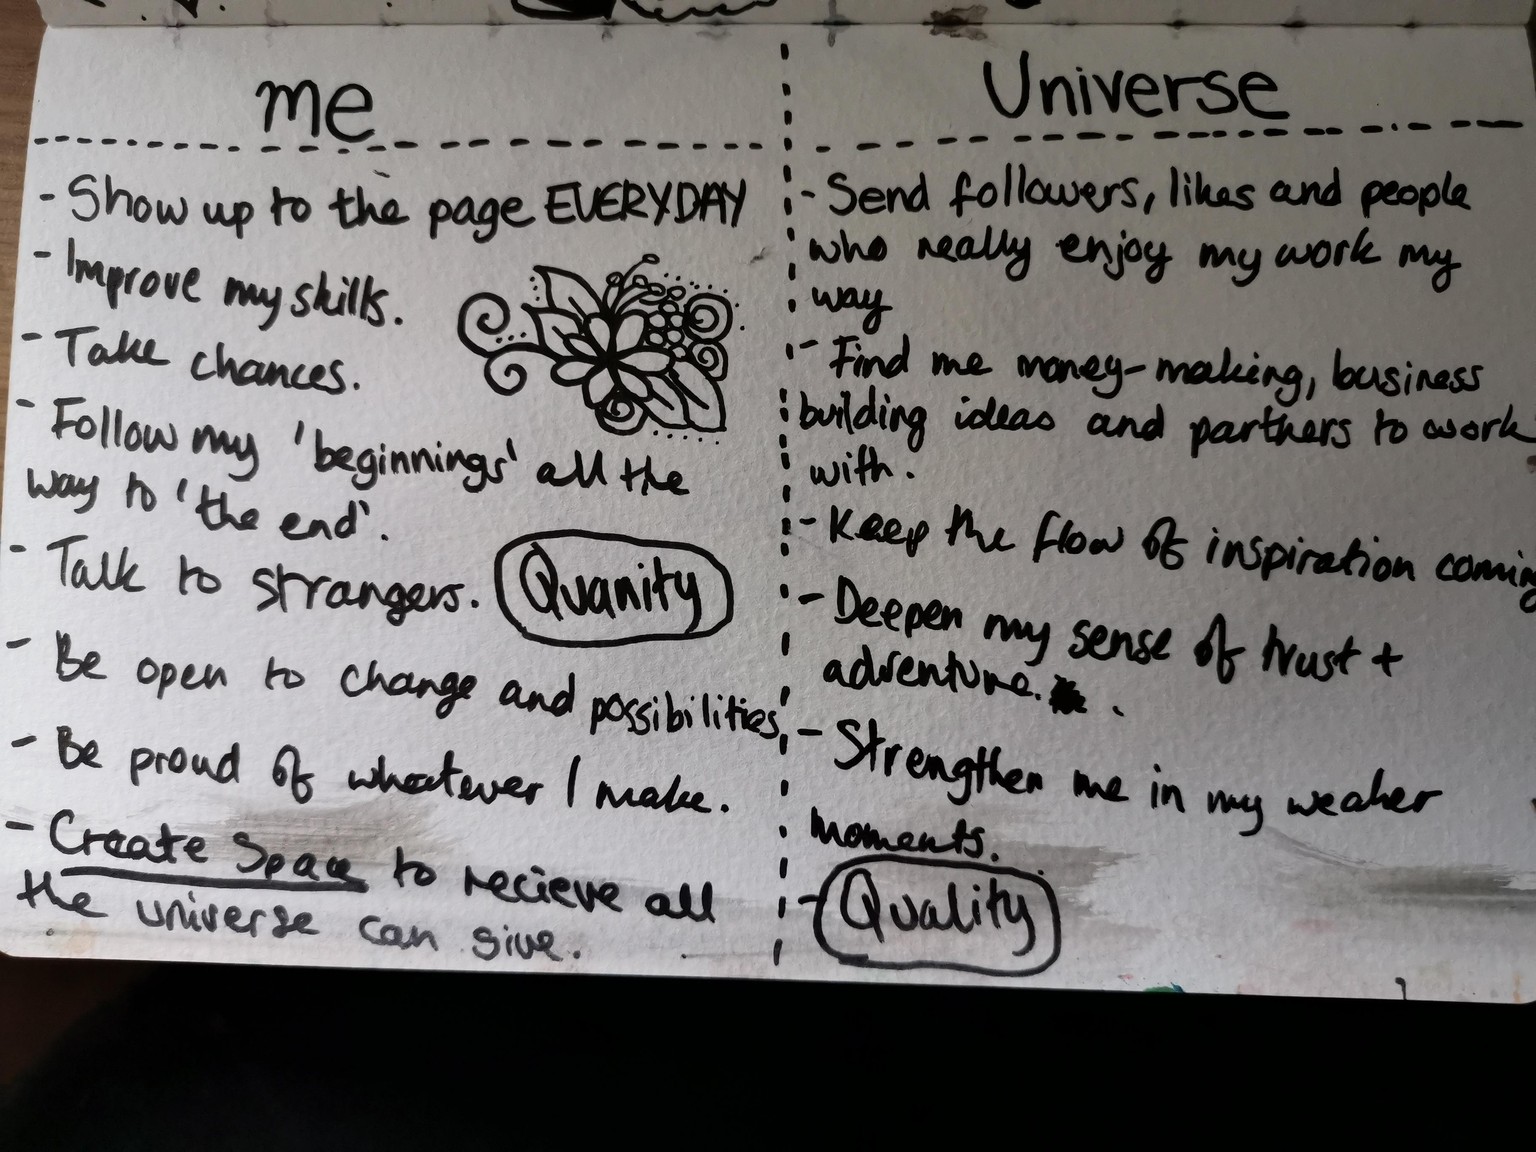 me
- Show up to the page EVERYDAY
- Improve my skills.
- Take chances.
- Follow my 'beginnings' all the
way to 'the end'.
- Talk to strangers.
Quanity
- Be open to change and possibilities,
- Be proud of whatever I make.
- Create Space to recieve all
the universe can give.
Universe
- Send followers, likes and people
who really enjoy my work my
way
- Find me money-making, business
building ideas and partners to work
with.
- Keep the flow of inspiration coming
- Deepen my sense of trust +
adventure. .
- Strengthen me in my weaker
moments.
- Quality